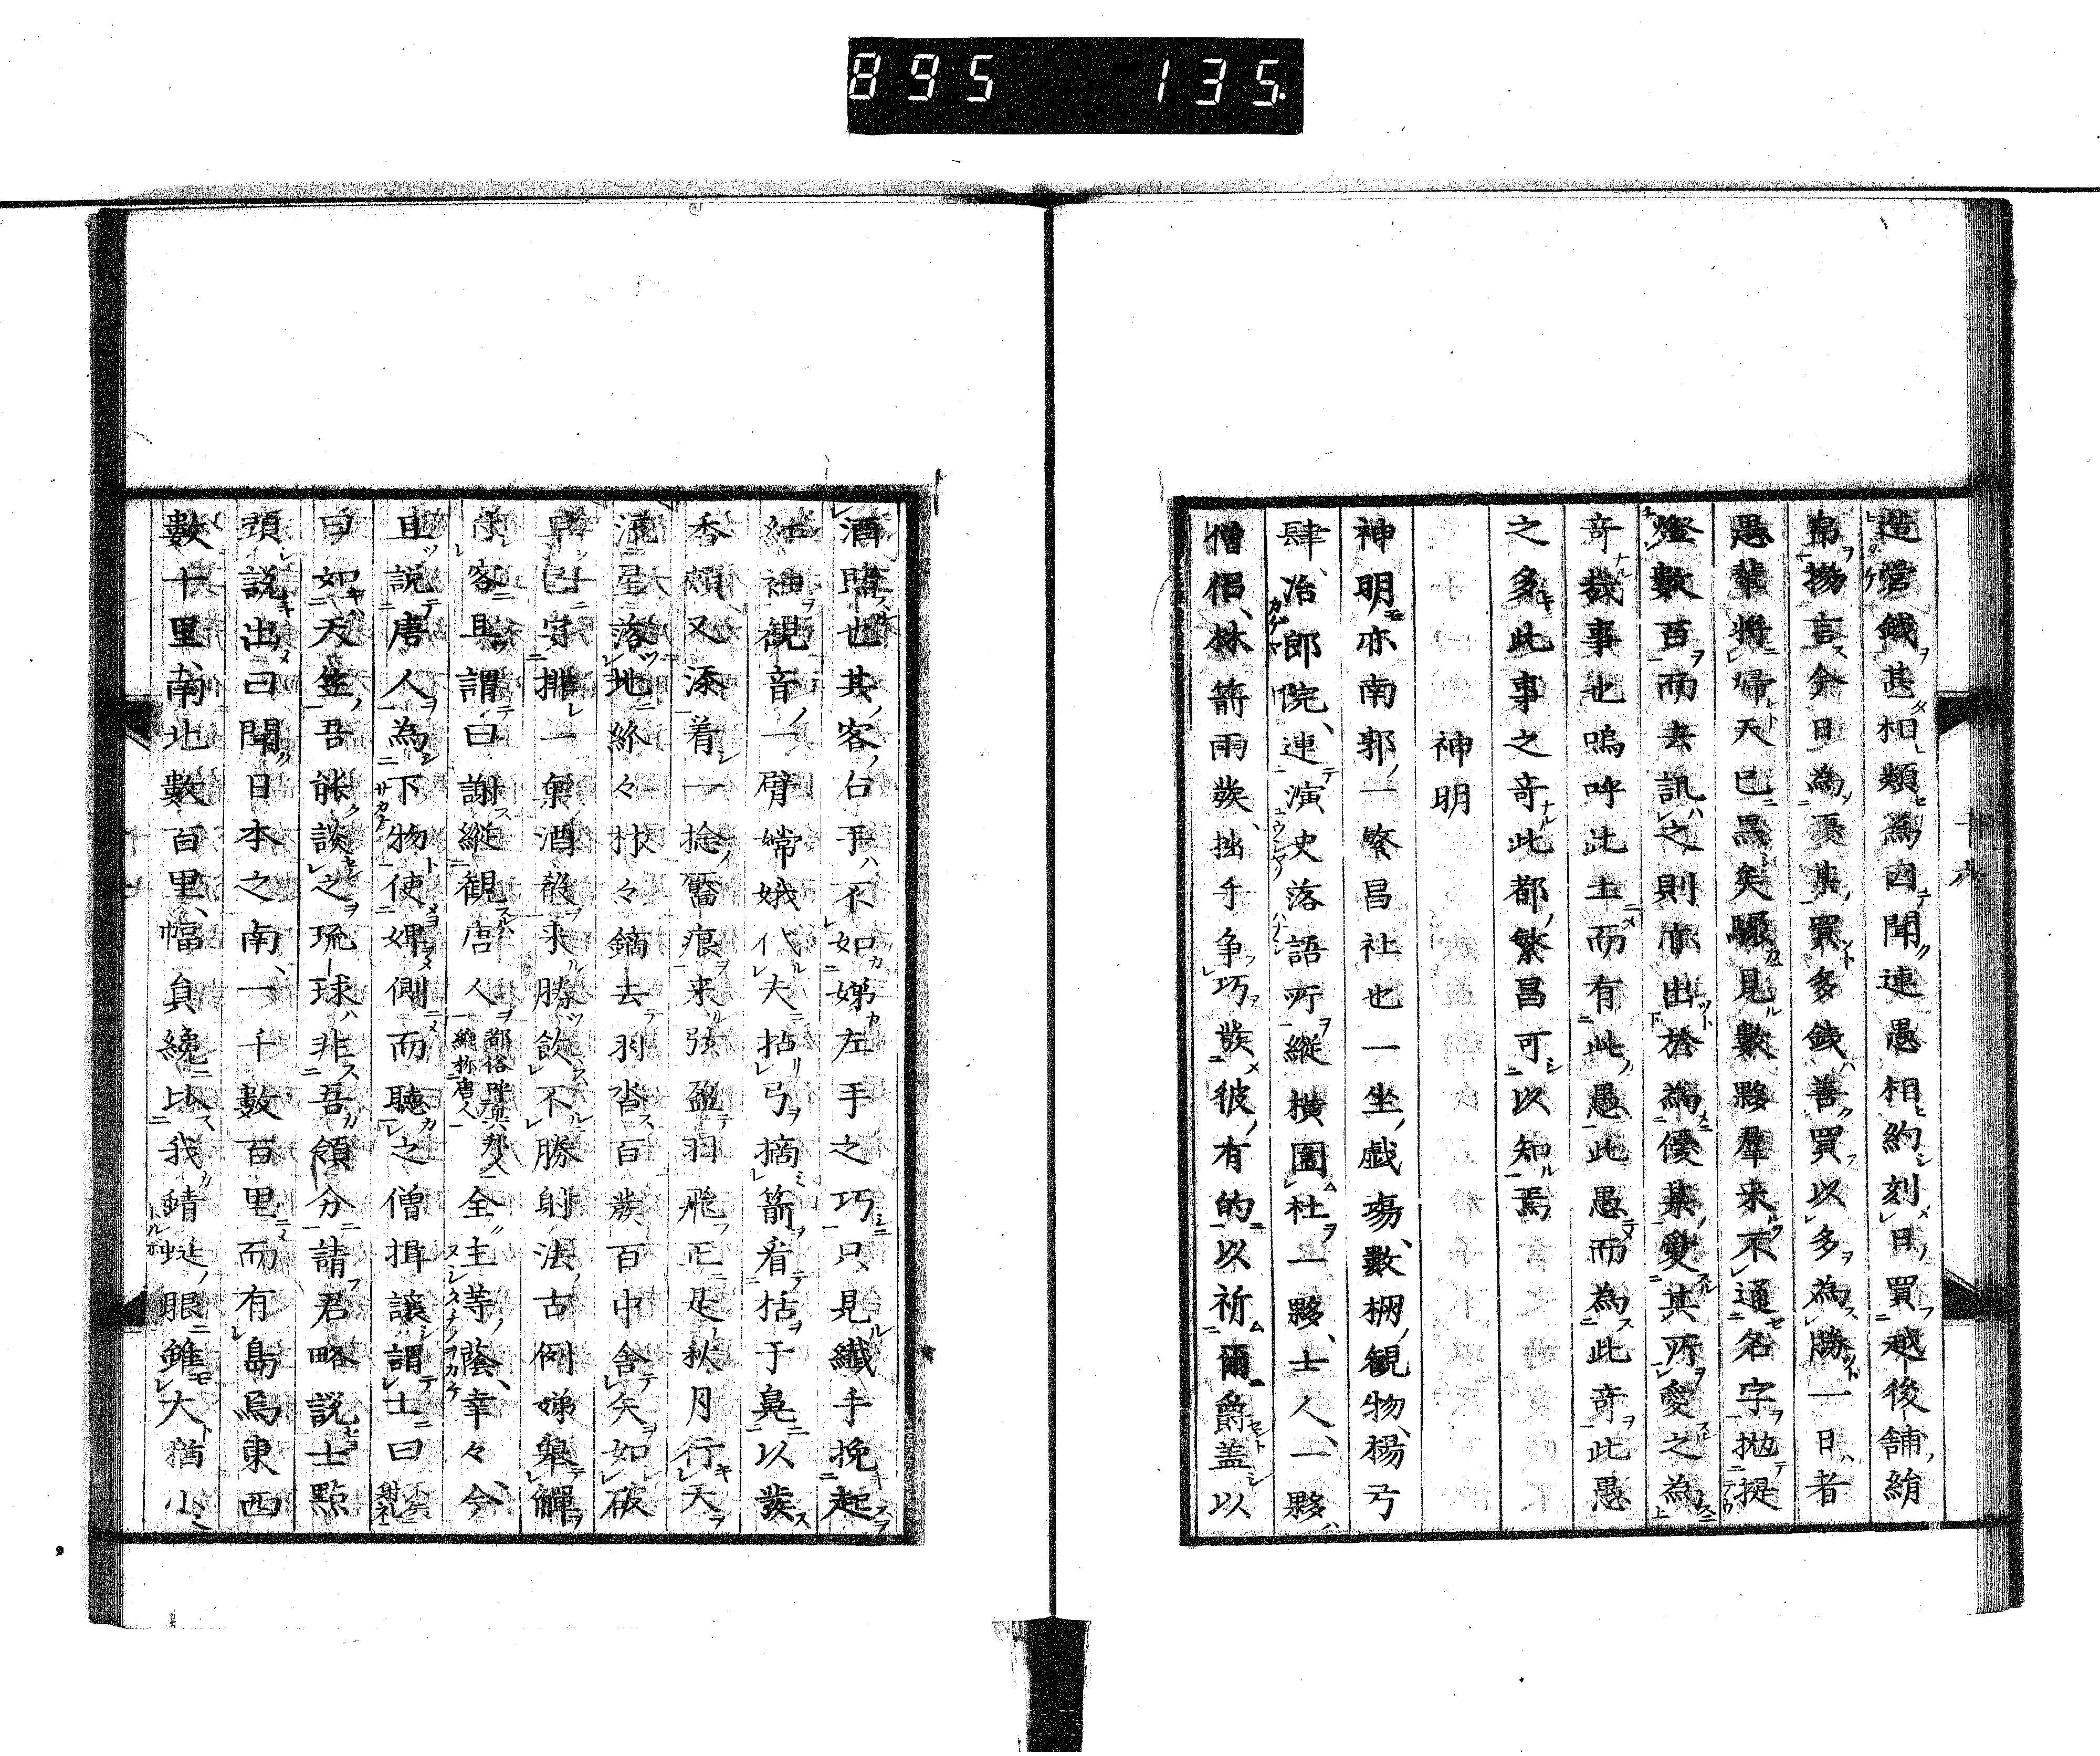 895 135
造營錢甚相類為因聞連愚相約刻日買越後舖絹
帛揚言分日為憂其買多錢善買以多為勝一日者
愚輩將帰天已黒矣驟見數夥羣来不通名字抛提
燈數百而去訊之則亦出於為優某愛其所愛之為
奇哉事也嗚呼此土而有此愚此愚而為此奇此愚
之多此事之奇此都繁昌可以知焉
神明
神明亦南郭一繁昌社也一坐戯場數棚観物楊弓
肆、冶郎院、連演史落語所縦横圍社一夥、士人、一夥
僧侶、林箭雨發、拙手争巧發彼有的以祈爾爵盖以
酒賭也其客右手不如娣左手之巧只見纖手挽起
紅袖観音一臂嫦娥代大拈弓摘箭看括于鼻以發
香頰又添着一捻舊痕来弦盈羽飛正是秋月行天
流星落地絲々枎々鏑去羽沓百發百中舎矢如破
早已安排一菓酒殽来勝飲不勝射法古例娣擧觶
属客且謂曰謝縦観唐人都俗呼異邦人總称唐人全主等蔭、幸々、今
且説唐人為下物使婢側而聴之僧揖讓謂士曰不云射礼
曰如天竺吾能談之琉球非吾領分請君略説士點
頭説出曰聞日本之南、一千數百里而有島焉東西
數十里、南北數百里、幅員纔比我蜻蜓眼雖大猶小